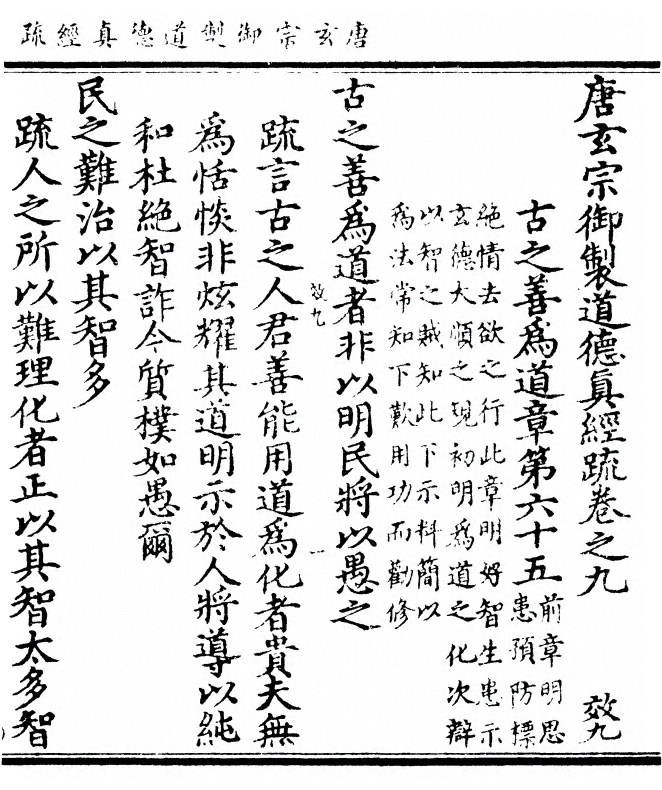 唐玄宗御製道德真經疏
唐玄宗御製道德眞經疏卷之九 效九
古之善爲道章第六十五
前章明思
患預防標
絶情去欲之行此章明好智生患示
玄德大順之規初明爲道之化次辯
以智之賊知此下示料簡以
爲法常知下歎用功而勸修
古之善爲道者非以明民將以愚之
效九
疏言古之人君善能用道爲化者貴夫無
爲恬惔非炫耀其道明示於人將導以純
和杜絶智詐令質樸如愚爾
民之難治以其智多
疏人之所以難理化者正以其智太多智